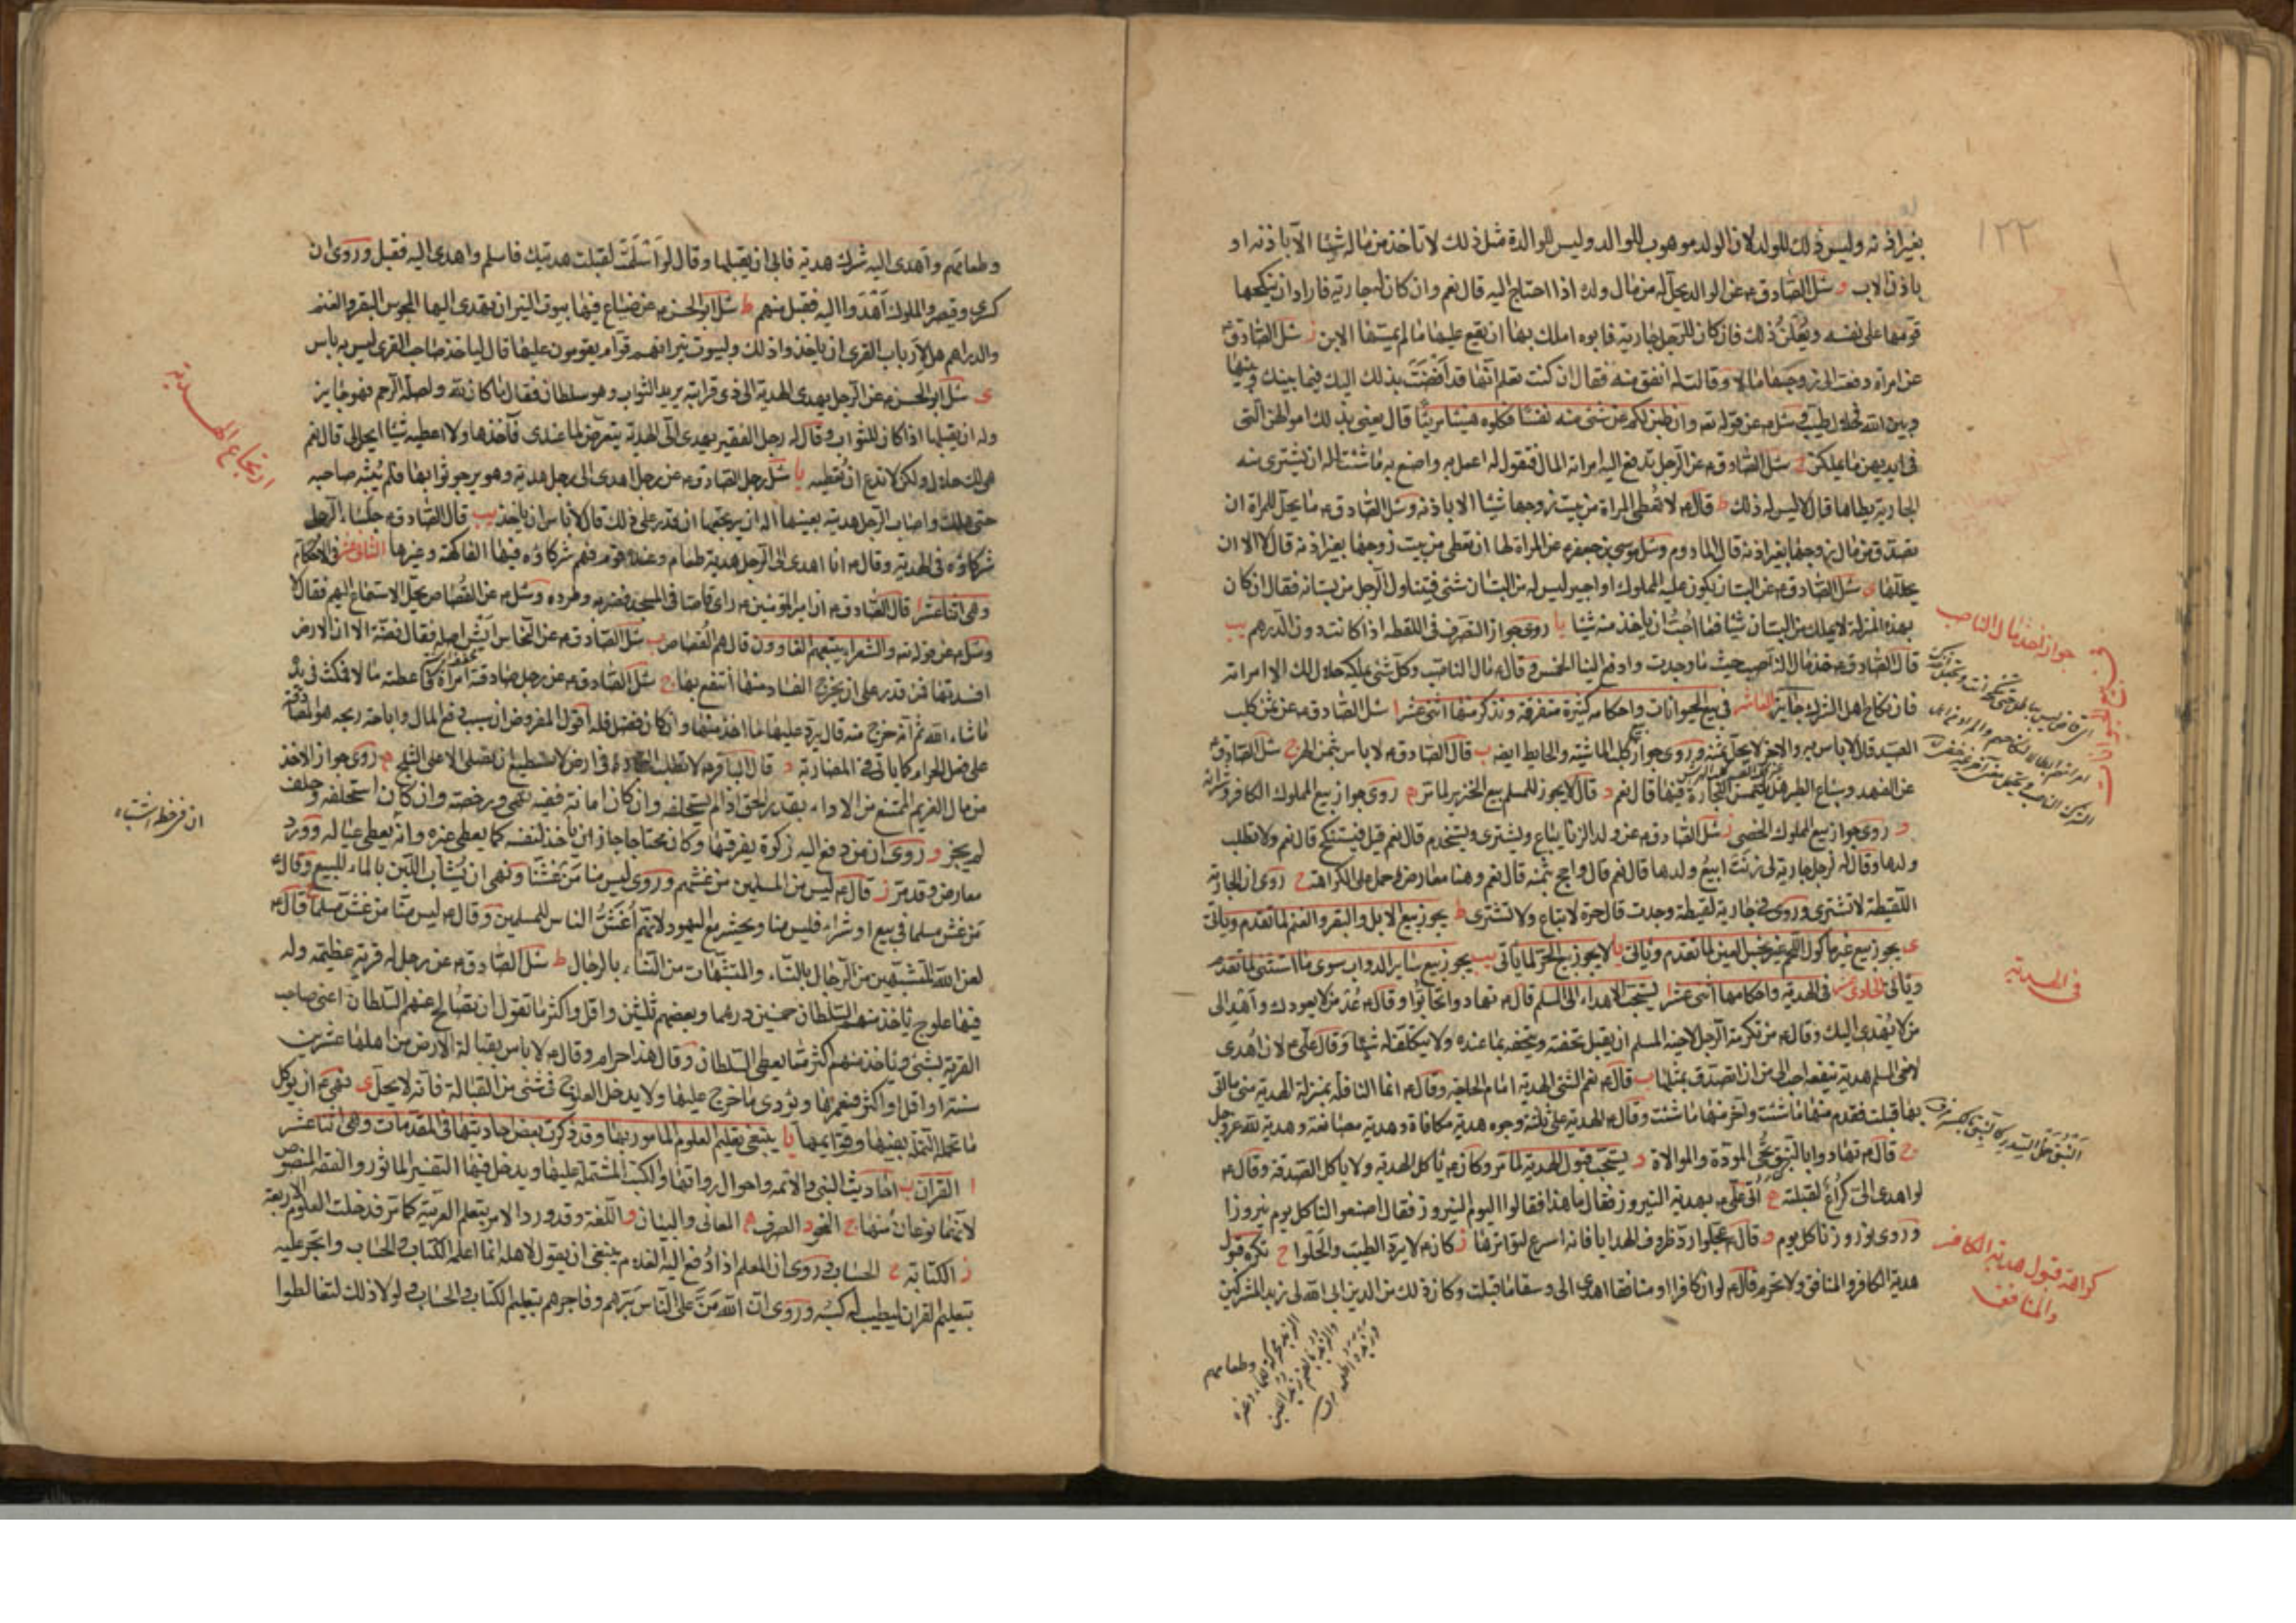 ١٢٢
بغير اذنه وليس ذلك للولد لان الولد موهوب للوالد وليس للوالدة مثل ذلك لا تاخذ من ماله شيئا الا باذنه او
باذن الاب و سئل الصادق ع عن الوالد يحل له من مال ولده اذا احتاج اليه قال نعم وان كان له جارية فاراد ان ينكحها
قومها على نفسه ويعلن ذلك فان كان للرجل جارية فابوه املك بها ان يقع عليها ما لم يمسها الابن ز سئل الصادق ع
عن امراة دفعت الى زوجها مالا وقالت له انفق منه فقال ان كنت تعلم انها قد افضت بذلك اليك فيما بينك وبينها
وبين الله فحلال طيب وسئل ع عن قوله تع وان طبن لكم عن شئ منه نفسا فكلوه هنيئا مريئا قال يعنى بذلك اموالهن التى
فى ايديهن مما يملكن ح سئل الصادق ع عن الرجل تدفع اليه امراته المال فتقول له اعمل به واصنع به ما شئت اله ان يشترى منه
الجارية يطاها قال لا ليس له ذلك ط قال ع لا تعطى المراة من بيت زوجها شيئا الا باذنه وسئل الصادق ع ما يحل للمراة ان
تصدق من مال زوجها بغير اذنه قال المادوم وسئل موسى بن جعفر ع عن المراة لها ان تعطى من بيت زوجها بغير اذنه قال لا الا ان
يحللها ى سئل الصادق ع عن البستان يكون عليه المملوك او اجير ليس له من البستان شئ فيتناول الرجل من بستانه فقال ان كان
بهذه المنزلة لا يملك من البستان شيئا فما احب ان ياخذ منه شيئا يا روى جواز التصرف فى اللقطه اذا كانت دون الدرهم يب
قال الصادق ع خذ مال الناصب حيث ما وجدت وادفع الينا الخمس وقال ع مال الناصب وكل شئ يملكه حلال لك الا امراته
فان نكاح اهل الشرك جايز العاشر فى بيع الحيوانات واحكامه كثيرة متفرقة ونذكر منها اثنى عشر ا سئل الصادق ع عن ثمن كلب
الصيد قال لا باس به والاخر لا يحل ثمنه وروى جواز كلب الماشية والحايط ايضه ب قال الصادق ع لا باس بثمن الهر ج سئل الصادق ع
عن الفهود وسباع الطير هل يلتمس التجارة فيها قال نعم د قال لا يجوز للمسلم بيع الخنزير لما مر ه روى جواز بيع المملوك الكافر وشرائه
و روى جواز بيع المملوك الخصى ز سئل الصادق ع عن ولد الزنا يباع ويشترى ويستخدم قال نعم قيل فيستنكح قال نعم ولا تطلب
ولدها وقال له رجل جارية لى زنت ابيع ولدها قال نعم قال واحج بثمنه قال نعم وهنا معارض حمل على الكراهة ح روى ان الجارية
اللقيطة لا تشترى وروى فى جارية لقيطة وجدت قال حرة لا تباع ولا تشترى ط يجوز بيع الابل والبقر والغنم لما تقدم وياتى
ى يجوز بيع غير ماكول اللحم غير نجس العين لما تقدم وياتى يا لا يجوز بيع الحر لما ياتى يب يجوز بيع ساير الدواب سوى ما استثنى لما تقدم
وياتى الحادى عشر فى الهدية واحكامها اثنى عشر ا يستحب الاهداء الى المسلم قال ع تهادوا تحابوا وقال ع عد من لا يعودك واهد الى
من لا يهدى اليك وقال ع من تكرمة الرجل لاخيه المسلم ان يقبل تحفته ويتحفه بما عنده ولا يتكلف له شيئا وقال على ع لان اهدى
لاخى المسلم هدية تنفعه احب الى من ان اتصدق بمثلها ب قال ع نعم الشئ الهدية امام الحاجة وقال ع انما النافلة بمنزلة الهدية متى ما اتى
بها قبلت فقدم منها ما شئت واخر منها ما شئت وقال ع الهدية على ثلثة وجوه هدية مكافاة وهدية مصانعة وهدية لله عز وجل
ج قال ع تهادوا بالنبق تحيى المودة والموالاة د يستحب قبول الهدية لما مر وكان ع ياكل الهدية ولا ياكل الصدقة وقال ع
لو اهدى الى كراع لقبلته ه اتى على ع بهدية النيروز فقال ما هذا فقالوا اليوم النيروز فقال اصنعوا لنا كل يوم نيروزا
وروى نوروزنا كل يوم و قال ع عجلوا رد ظروف الهدايا فانه اسرع لتواترها ز كان ع لا يرد الطيب والحلوا ح تكره قبول
هدية الكافر والمنافق ولا تحرم قال ع لو ان كافرا او منافقا اهدى الى وسقا ما قبلت وكان ذلك من الدين ابى الله لى زبد المشركين
وطعامهم
جواز اخذ مال الناصب
فى بيع الحيوانات
فى الهدية
كراهة قبول هدية الكافر
والمنافق
وطعامهم واهدى اليه مشرك هدية فابى ان يقبلها وقال لو اسلمت لقبلت هديتك فاسلم واهدى اليه فقبل وروى ان
كسرى وقيصر والملوك اهدوا اليه فقبل منهم ط سئل ابو الحسن ع عن ضياع فيها بيوت النيران تهدى اليها المجوس البقر والغنم
والدراهم هل لارباب القرى ان ياخذوا ذلك ولبيوت نيرانهم قوام يقومون عليها قال لياخذ صاحب القرى ليس به باس
ى سئل ابو الحسن ع عن الرجل يهدى الهدية الى ذى قرابته يريد الثواب وهو سلطان فقال ما كان لله ولصلة الرحم فهو جايز
وله ان يقبلها اذا كان للثواب وقال له رجل الفقير يهدى الى الهدية يتعرض لما عندى فآخذها ولا اعطيه شيئا ايحل لى قال نعم
هى لك حلال ولكن لا تدع ان تعطيه يا سئل رجل الصادق ع عن رجل اهدى الى رجل هدية وهو يرجو ثوابها فلم يثبه صاحبه
حتى هلك واصاب الرجل هديته بعينها اله ان يرتجعها ان قدر على ذلك قال لا باس ان ياخذ يب قال الصادق ع جلساء الرجل
شركاؤه فى الهدية وقال ع اذا اهدى الى الرجل هدية طعام وعنده قوم فهم شركاؤه فيها الفاكهة وغيرها الثانى عشر فى الاحكام
وهى اثنا عشر ا قال الصادق ع ان امير المؤمنين ع راى قاصا فى المسجد فضربه وطرده وسئل ع عن القصاص يحل الاستماع لهم فقال لا
وسئل ع عن قوله تع والشعراء يتبعهم الغاوون قال هم القصاص ب سئل الصادق ع عن النحاس ايش اصله فقال فضة الا ان الارض
افسدتها فمن قدر على ان يخرج الفساد منها انتفع بها ج سئل الصادق ع عن رجل صادقته امراة فاعطته مالا فمكث فى يده
ما شاء الله ثم انه خرج منه قال يرد عليها ما اخذ منها وان كان فضل فله اقول المفروض ان سبب دفع المال واباحة ربحه هو المصادقة
على فعل الحرام كما ياتى فى المضاربة د قال الباقر ع لا تطلب التجارة فى ارض لا تستطيع ان تصلى الا على الثلج ه روى جواز الاخذ
من مال الغريم الممتنع من الاداء بقدر الحق اذا لم يستحلفه وان كان امانة ففيه نهى ورخصة وان كان استحلفه وحلف
لم يجز و روى ان من دفع اليه زكوة يفرقها وكان محتاجا جاز ان ياخذ لنفسه كما يعطى غيره وانه يعطى عياله وورد
معارض وقد مر ز قال ع ليس من المسلمين من غشهم وروى ليس منا من غشنا ونهى ان يشاب اللبن بالماء للبيع وقال ع
من غش مسلما فى بيع او شراء فليس منا ويحشر مع اليهود لانهم اغش الناس للمسلمين وقال ع ليس منا من غش مسلما ح قال ع
لعن الله المتشبهين من الرجال بالنساء والمتشبهات من النساء بالرجال ط سئل الصادق ع عن رجل له قرية عظيمة وله
فيها علوج ياخذ منهم السلطان خمسين درهما وبعضهم ثلثين واقل واكثر ما تقول ان نصالح عنهم السلطان اعنى صاحب
القرية بشئ وياخذ منهم اكثر مما يعطى السلطان وقال هذا حرام وقال ع لا باس بقبالة الارض من اهلها عشرين
سنة او اقل او اكثر فيعمرها ويؤدى ما خرج عليها ولا يدخل العلوج فى شئ من القبالة فانه لا يحل ى نهى ع ان يوكل
ما تحمل النملة بفيها وقوايمها يا ينبغى تعليم العلوم المامور بها وقد ذكرت بعض احاديثها فى المقدمات وهى اثنا عشر
ا القران ب احاديث النبى والائمه واحوال رواتها والكتب المشتملة عليها ويدخل فيها التفسير الماثور والفقه المنصوص
لانهما نوعان منها ج النحو د الصرف ه المعانى والبيان و اللغة وقد ورد الامر بتعلم العربية كما مر فدخلت العلوم الاربعة
ز الكتابة ح الحساب وروى ان المعلم اذا دفع اليه الغلام ينبغى ان يقول لاهله انما اعلمه الكتاب والحساب واتجر عليه
بتعليم القران ليطيب له كسبه وروى ان الله من على الناس برهم وفاجرهم بتعليم الكتاب والحساب ولولا ذلك لتغالطوا
ارتجاع الهدية